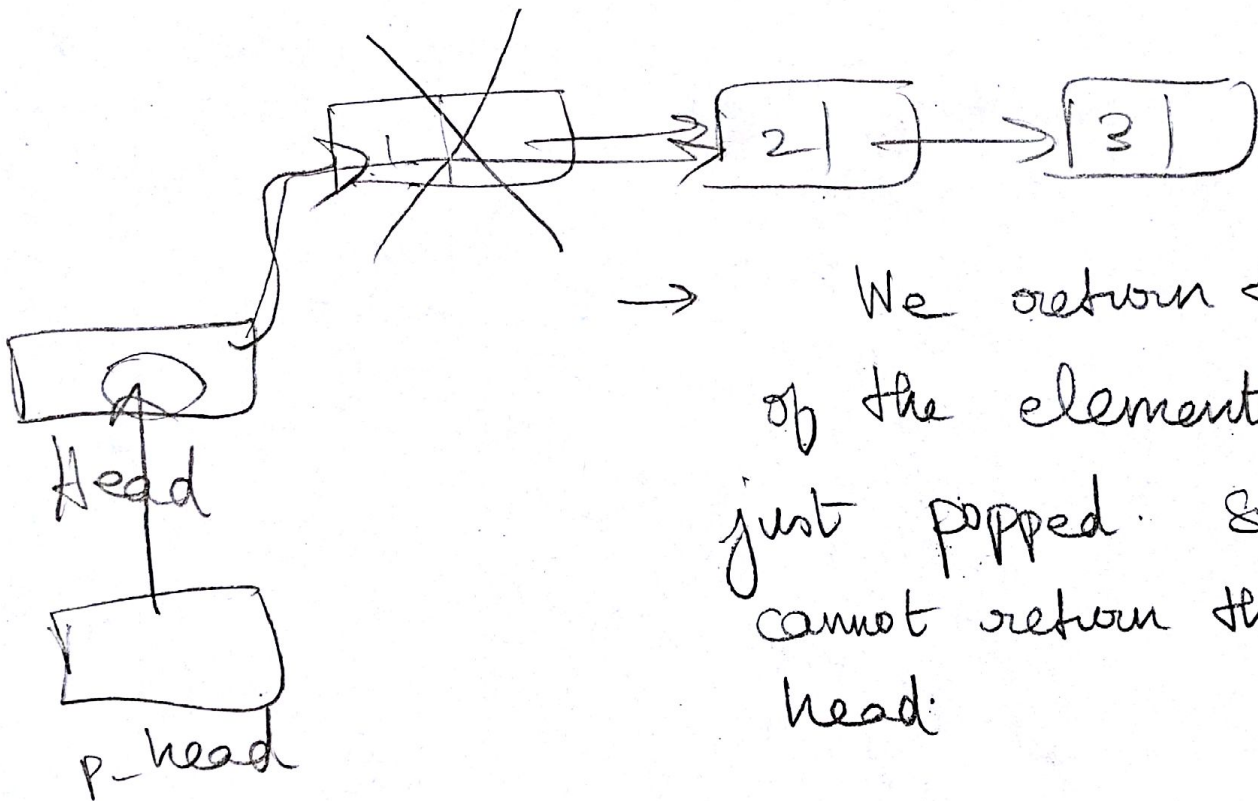 1 2 3
→ We return
of the element
just popped.
cannot return
head.
Head
p-head